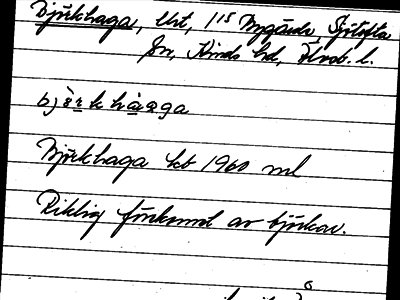 Björkhaga, Urt, 1/15 Nygärde, Sjötofta
sn, Kinds hd, Älvsb. l.
bjö̀rkhàga
Björkhaga kbt 1960 ml
Riklig förekomst av björkar.